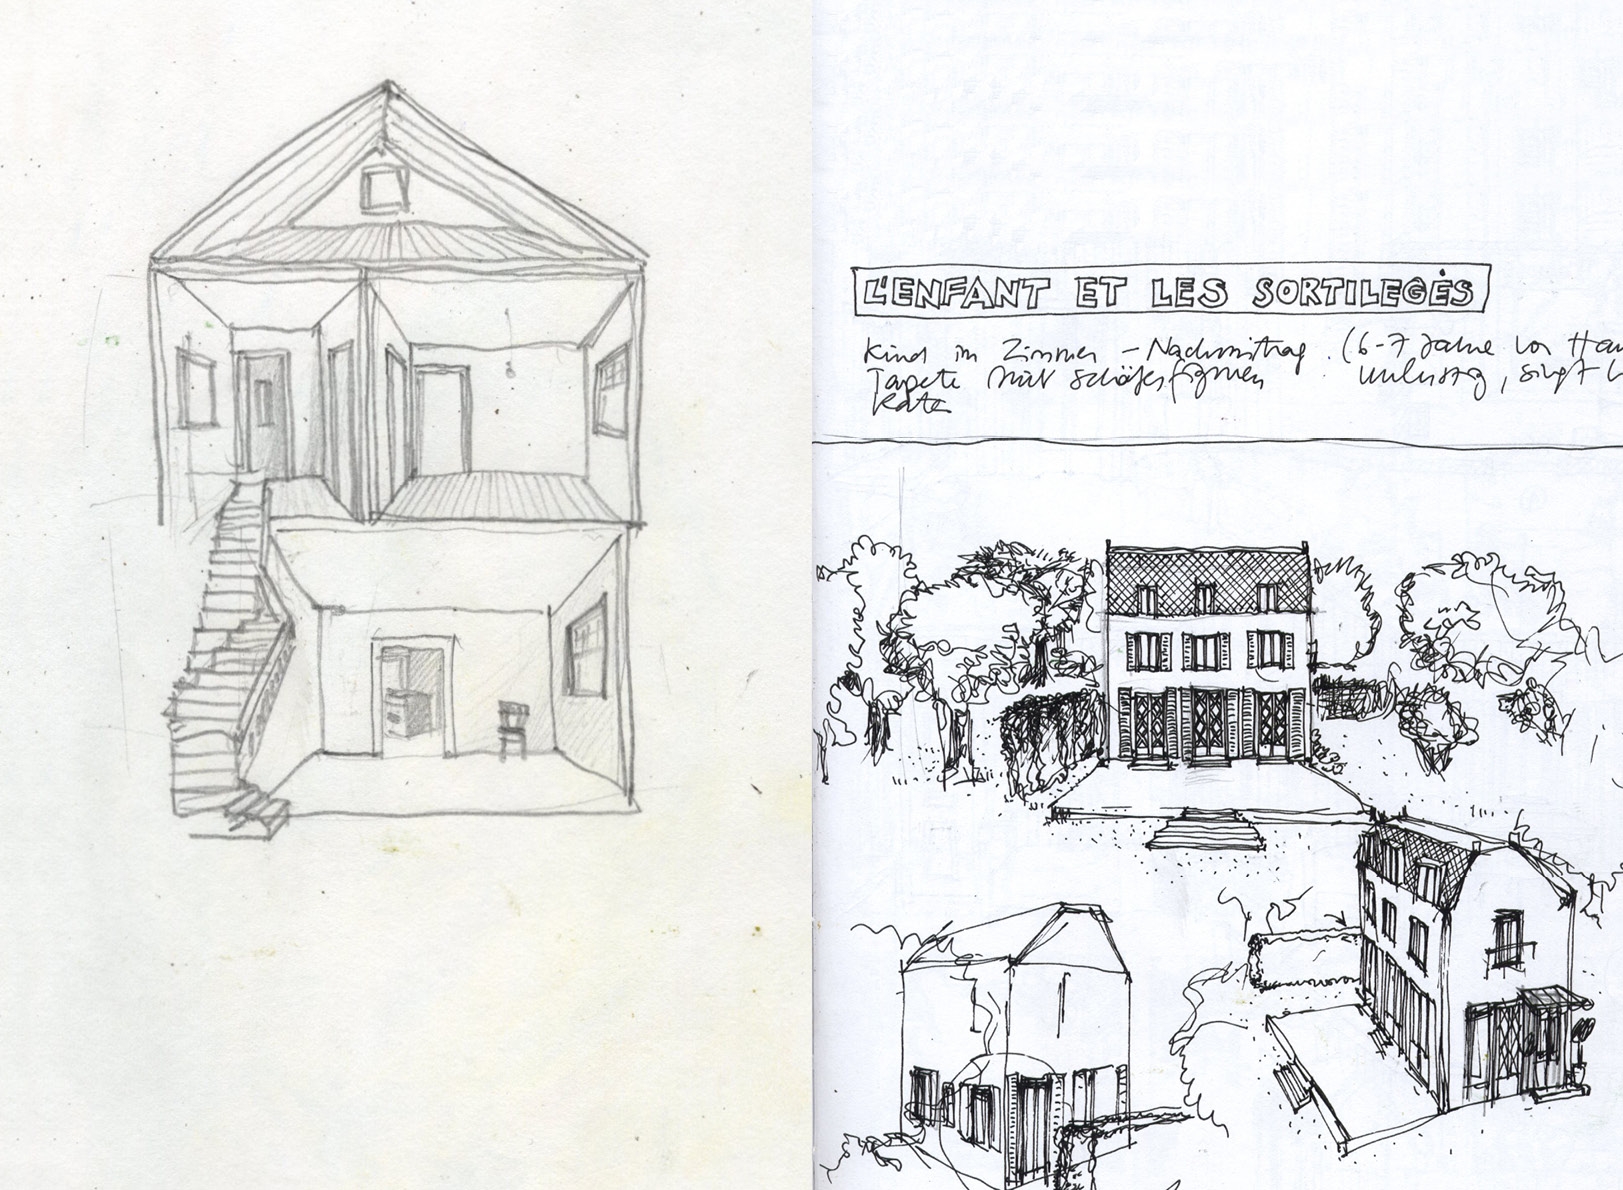 L'ENFANT ET LES SORTILEGÈS
Kind im Zimmer – Nachmittag (6-7 Jahre vor Hau
Tapete mit Schäferfiguren unlustig, singt
Katze